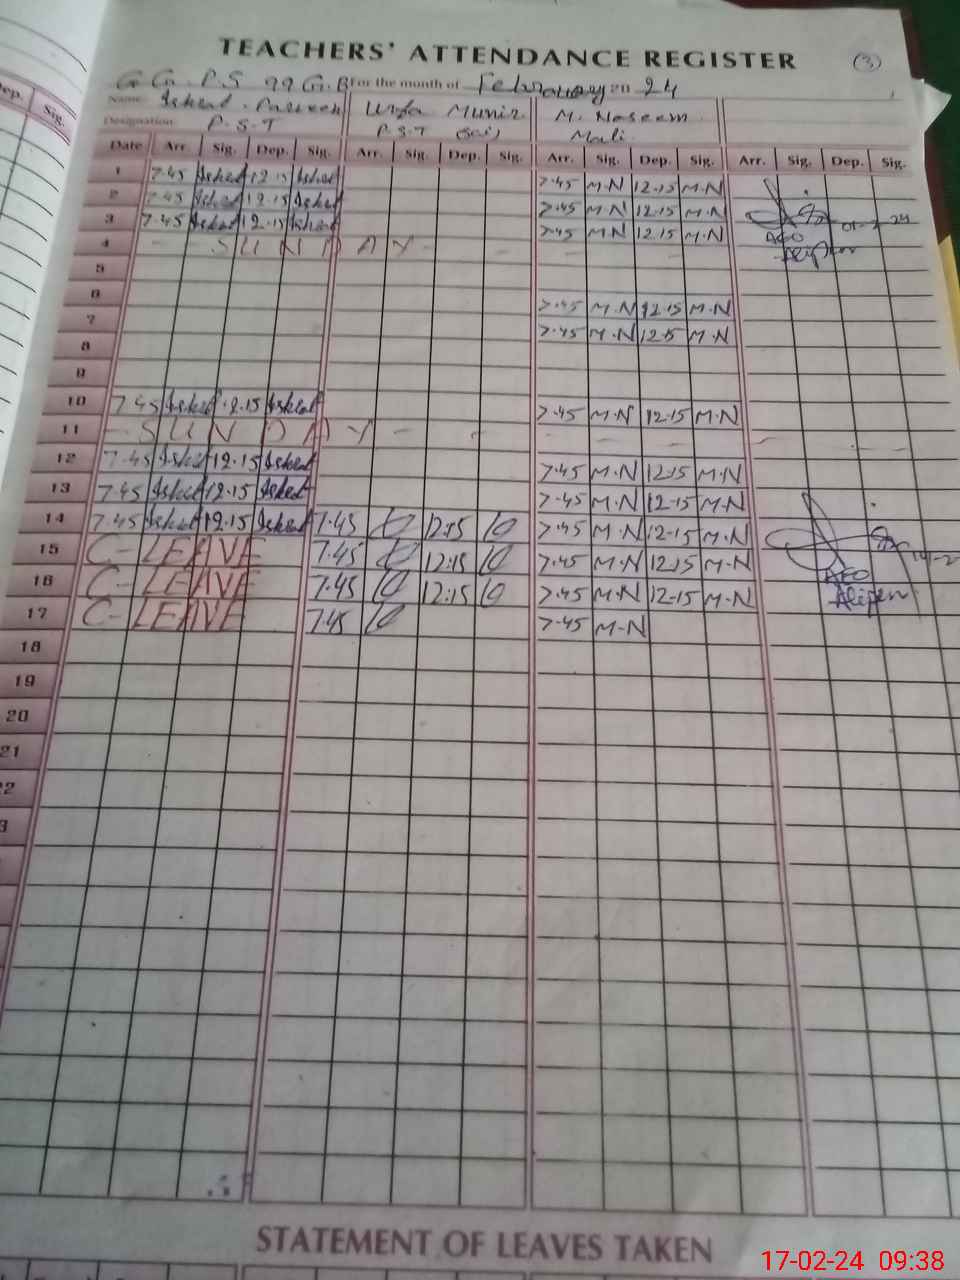 ep.
Dep.
Sig.
TEACHERS' ATTENDANCE REGISTER
3
G.G.P.S 99 G.B For the month of February 20 24
Name Ishrat Parveen Urfa Munir M. Naseem
Designation P.S.T P.S.T Mali
Date Arr. Sig. Dep. Sig. Arr. Sig. Dep. Sig. Arr. Sig. Dep. Sig. Arr. Sig. Dep. Sig.
1 7.45 Ishrat 12.15 Ishrat 7.45 M.N 12.15 M.N
2 7.45 Ishrat 12.15 Ishrat 7.45 M.N 12.15 M.N
3 7.45 Ishrat 12.15 Ishrat 7.45 M.N 12.15 M.N
AEO
4 - SUNDAY -
5
6 7.45 M.N 12.15 M.N
7 7.45 M.N 12.15 M.N
8
9
10 7.45 Ishrat 12.15 Ishrat 7.45 M.N 12.15 M.N
11 - SUNDAY -
12 7.45 Ishrat 12.15 Ishrat 7.45 M.N 12.15 M.N
13 7.45 Ishrat 12.15 Ishrat 7.45 M.N 12.15 M.N
14 7.45 Ishrat 12.15 Ishrat 7.45 12:15 7.45 M.N 12.15 M.N
15 C-LEAVE 7.45 12:15 7.45 M.N 12.15 M.N 14-2
AEO
16 C-LEAVE 7.45 12:15 7.45 M.N 12.15 M.N
17 C-LEAVE 7.45 7.45 M-N
18
19
20
21
2
3
STATEMENT OF LEAVES TAKEN
17-02-24 09:38